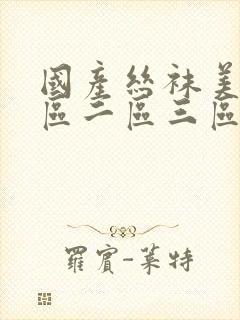 國產絲袜美
區二區三區
羅賓-萊特